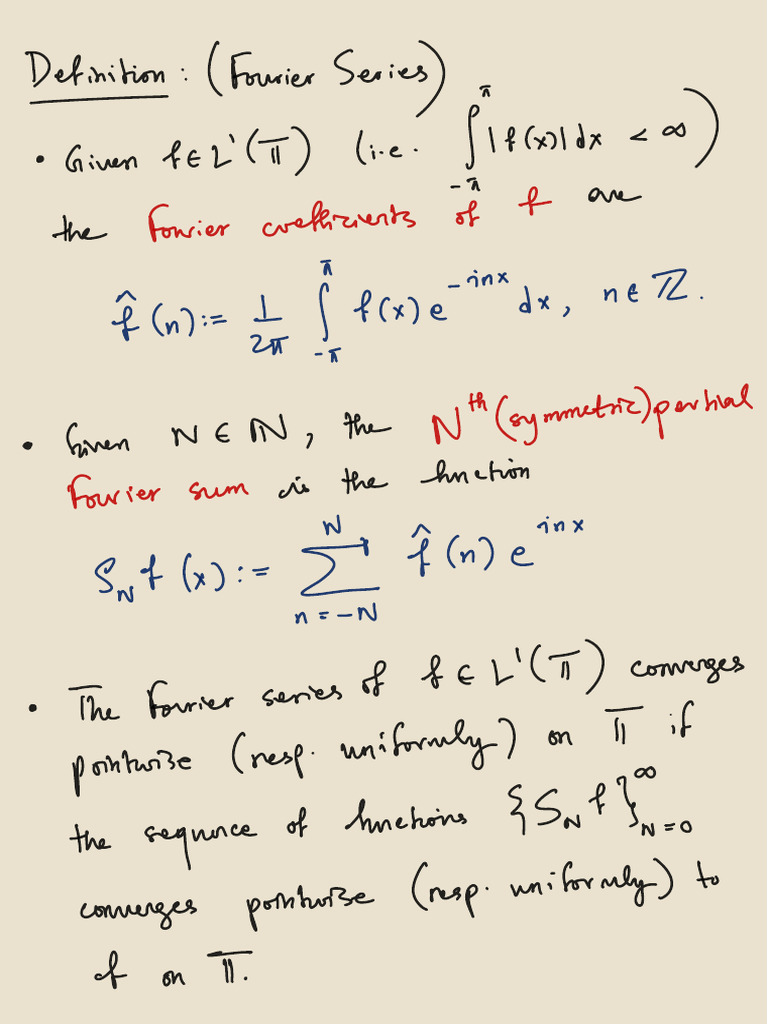 Definition: (Fourier Series)
• Given f ∈ L¹(𝕋) (i.e. ∫_{-π}^{π} |f(x)| dx < ∞)
the Fourier coefficients of f are
f̂(n) := 1/2π ∫_{-π}^{π} f(x) e^{-inx} dx, n ∈ ℤ.
• Given N ∈ ℕ, the Nᵗʰ (symmetric) partial
Fourier sum is the function
S_N f(x) := ∑_{n=-N}^{N} f̂(n) e^{inx}
• The Fourier series of f ∈ L¹(𝕋) converges
pointwise (resp. uniformly) on 𝕋 if
the sequence of functions {S_N f}_{N=0}^{∞}
converges pointwise (resp. uniformly) to
f on 𝕋.